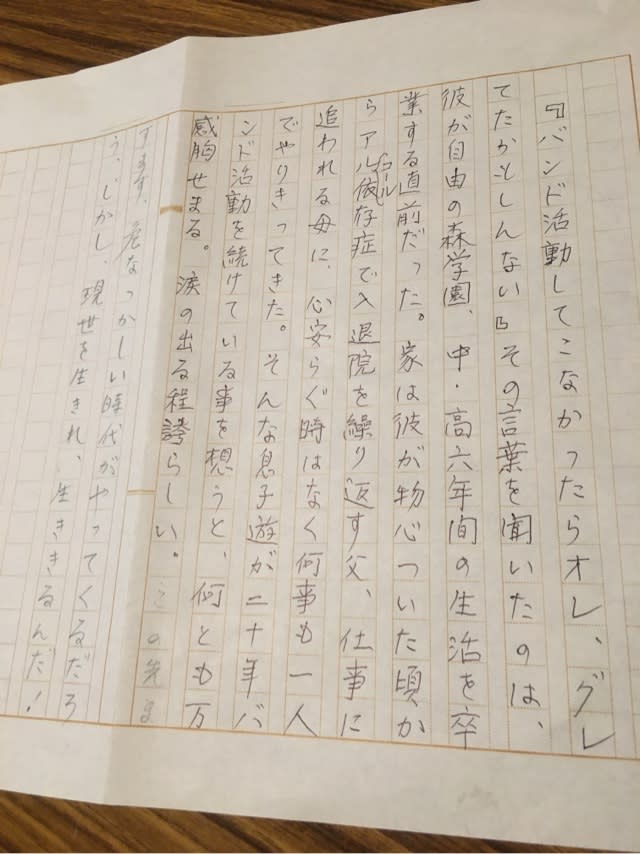 『バンド活動してこなかったらオレ、グレ
てたかもしんない』その言葉を聞いたのは、
彼が自由の森学園、中・高六年間の生活を卒
業する直前だった。家は彼が物心ついた頃か
らアルコール依存症で入退院を繰り返す父、仕事に
追われる母に、心安らぐ時はなく何事も一人
でやりきってきた。そんな息子遊が二十年バ
ンド活動を続けている事を想うと、何とも万
感胸せまる。涙の出る程誇らしい。この先ま
すます、危なっかしい時代がやってくるだろ
う、しかし、現世を生きれ、生ききるんだ！